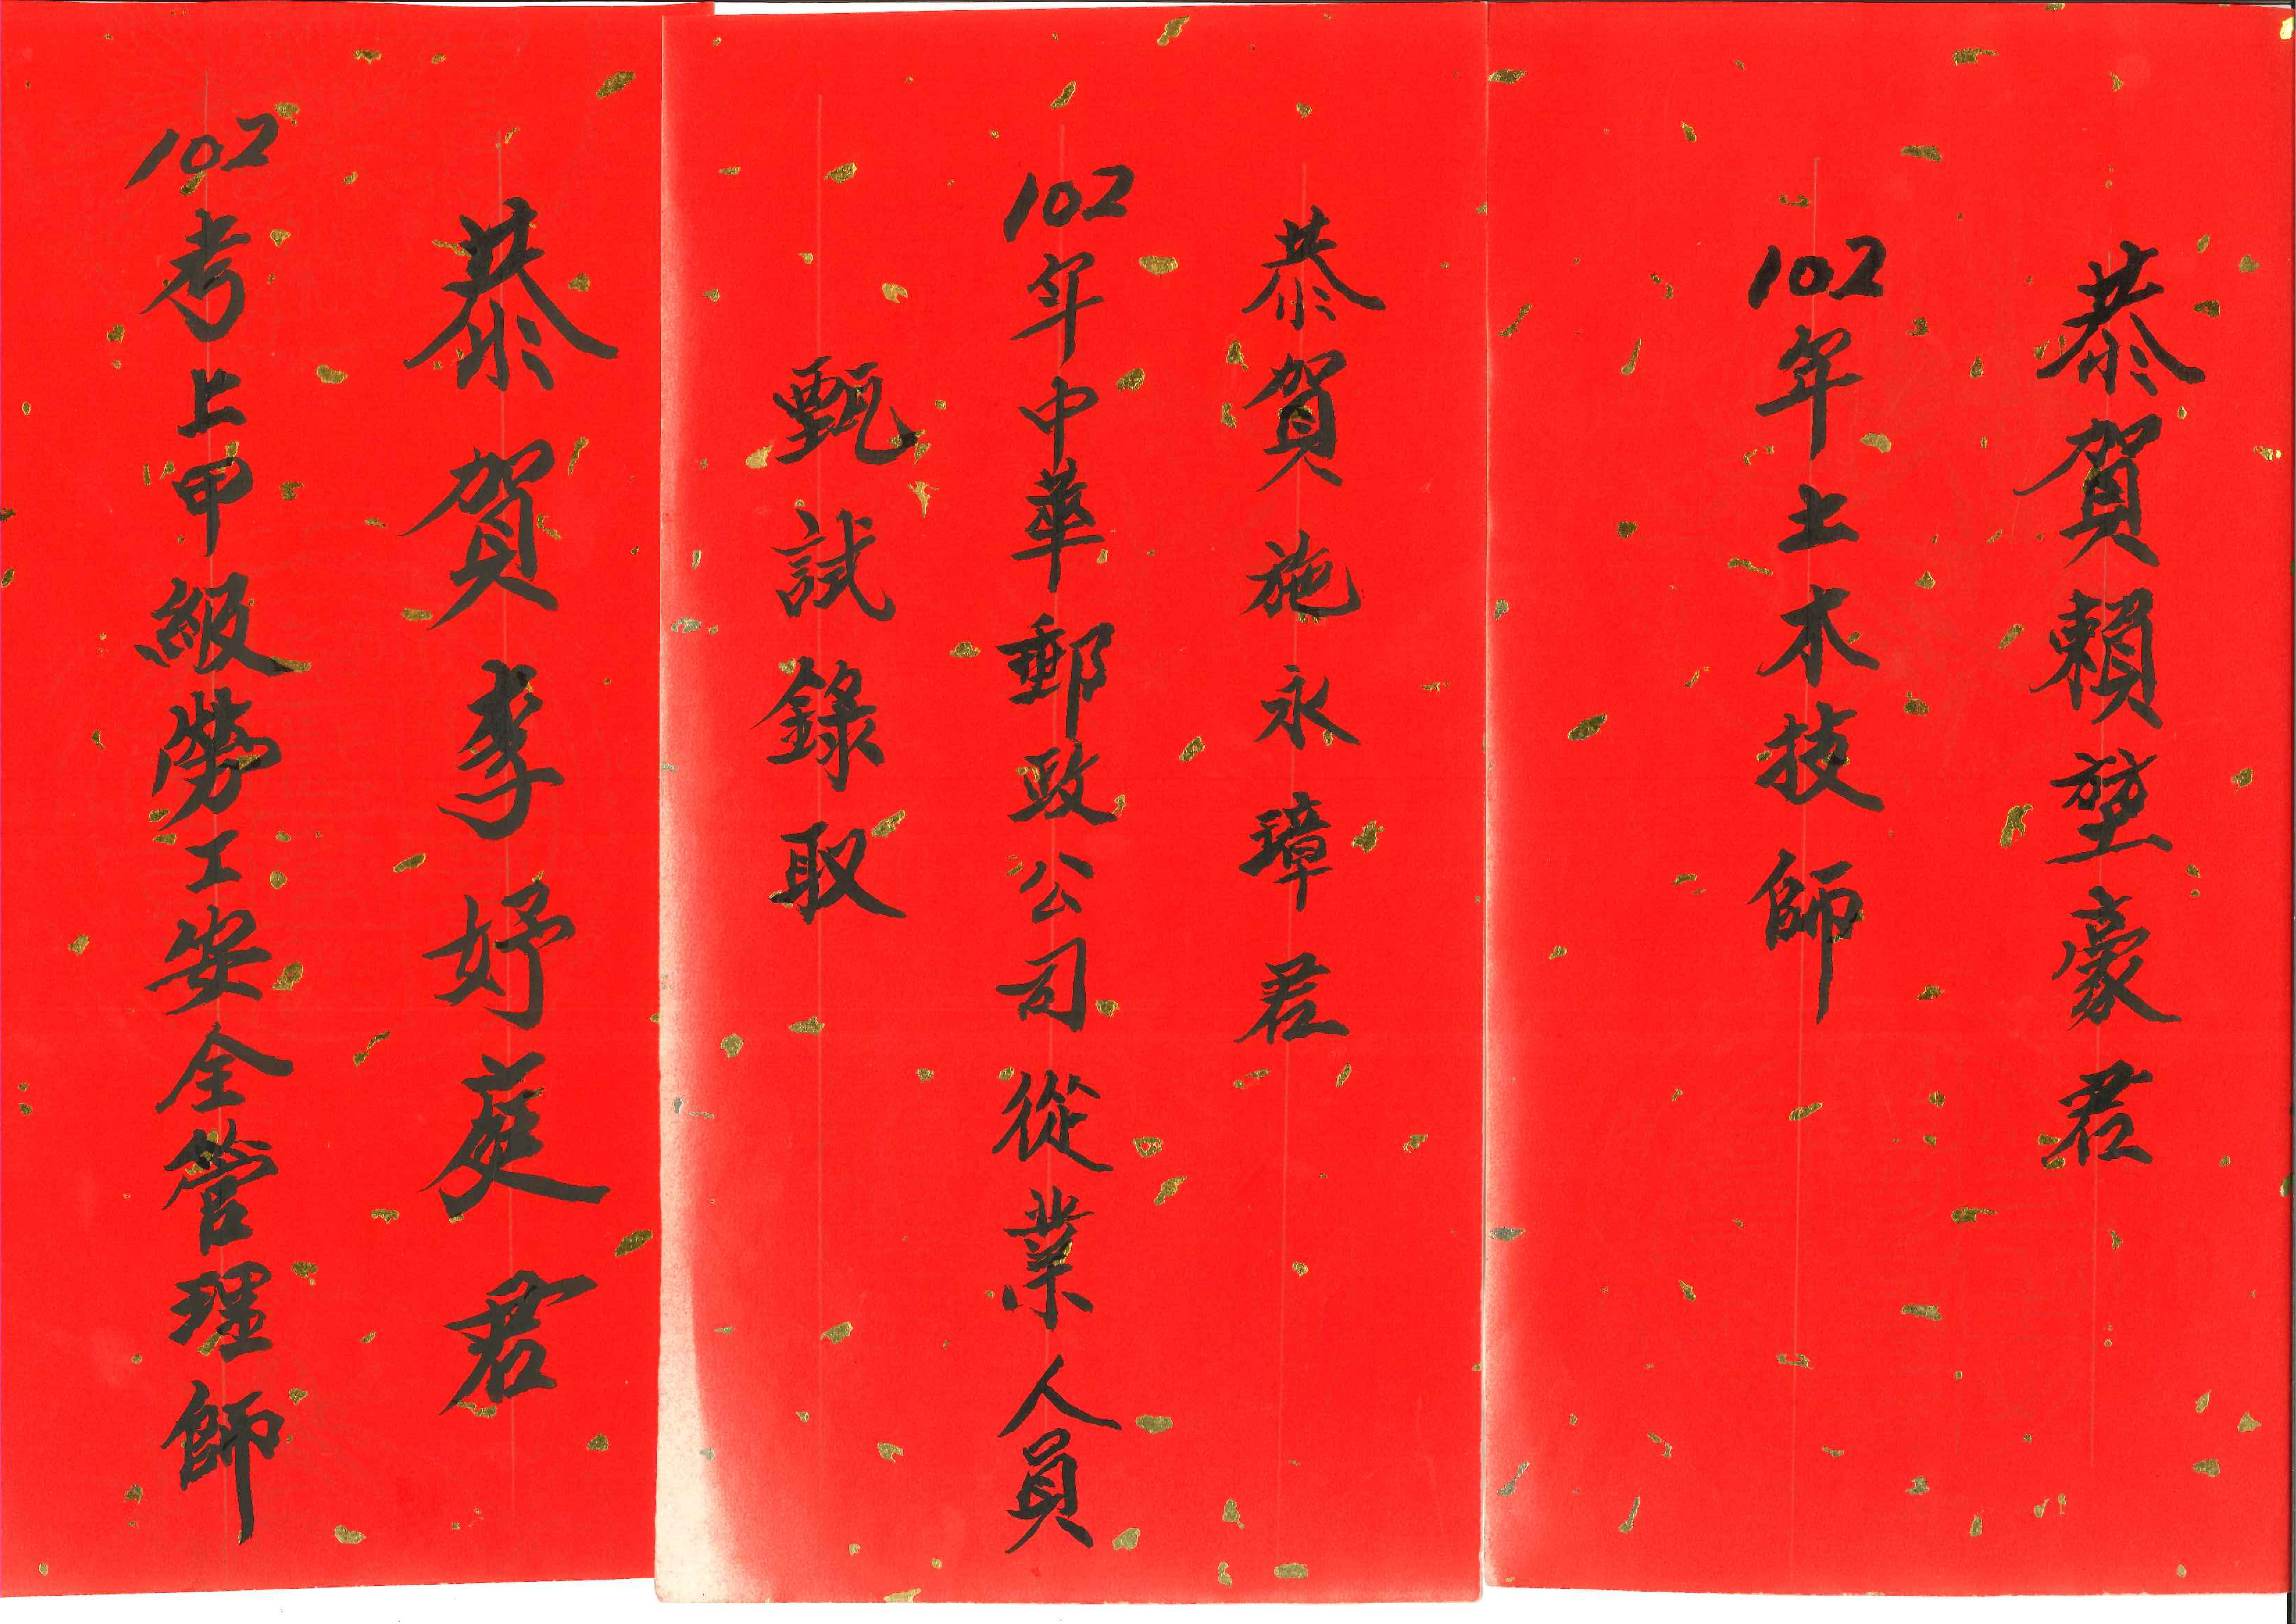 恭賀賴堃豪君
102年土木技師
恭賀施永璋君
102年中華郵政公司從業人員
甄試錄取
恭賀李妤君
102考上甲級勞工安全管理師